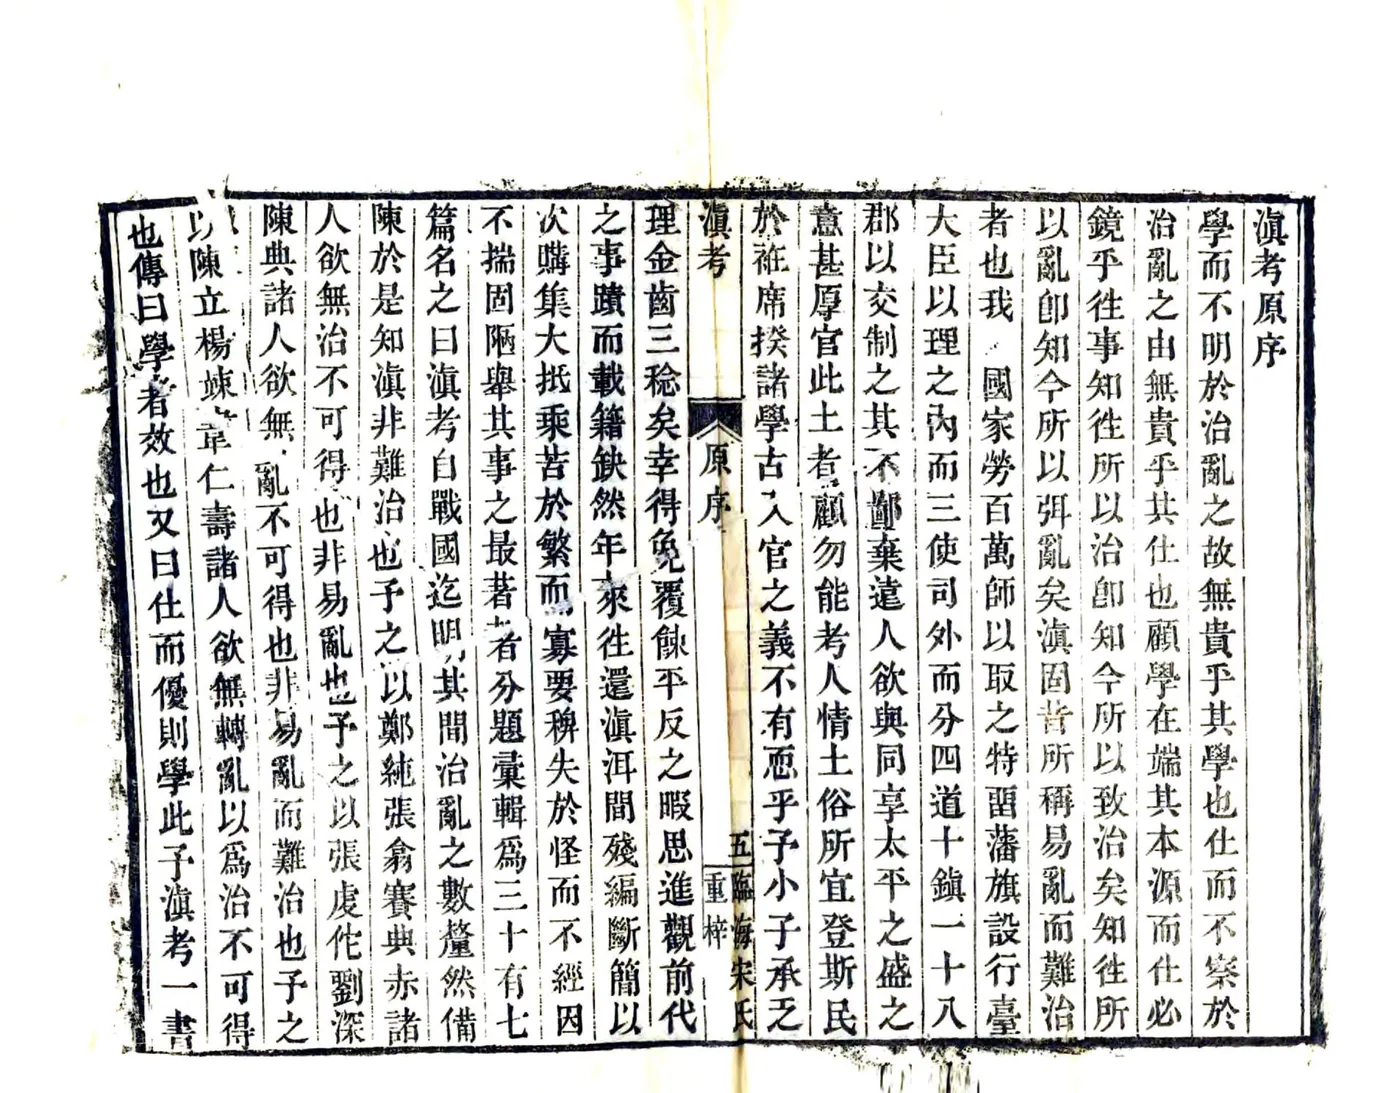 滇考原序
學而不明於治亂之故無貴乎其學也仕而不察於
治亂之由無貴乎其仕也顧學在端其本源而仕必
鏡乎徃事知徃所以治卽知今所以致治矣知徃所
以亂卽知今所以弭亂矣滇固昔所稱易亂而難治
者也我 國家勞百萬師以取之特畱藩旗設行臺
大臣以理之內而三使司外而分四道十鎮一十八
郡以交制之其不鄙棄遠人欲與同享太平之盛之
意甚厚官此土者顧勿能考人情土俗所宜登斯民
於袵席揆諸學古入官之義不有恧乎予小子承乏
滇考 原序 五 臨海宋氏重梓
理金齒三稔矣幸得免覆餗平反之暇思進觀前代
之事蹟而載籍缺然年來徃還滇洱間殘編斷簡以
次購集大抵乘苦於繁而寡要稗失於怪而不經因
不揣固陋舉其事之最著者分題彙輯爲三十有七
篇名之曰滇考自戰國迄明其間治亂之數釐然備
陳於是知滇非難治也予之以鄭純張翕賽典赤諸
人欲無治不可得也非易亂也予之以張虔佗劉深
陳典諸人欲無亂不可得也非易亂而難治也予之
以陳立楊竦韋仁壽諸人欲無轉亂以爲治不可得
也傳曰學者效也又曰仕而優則學此予滇考一書